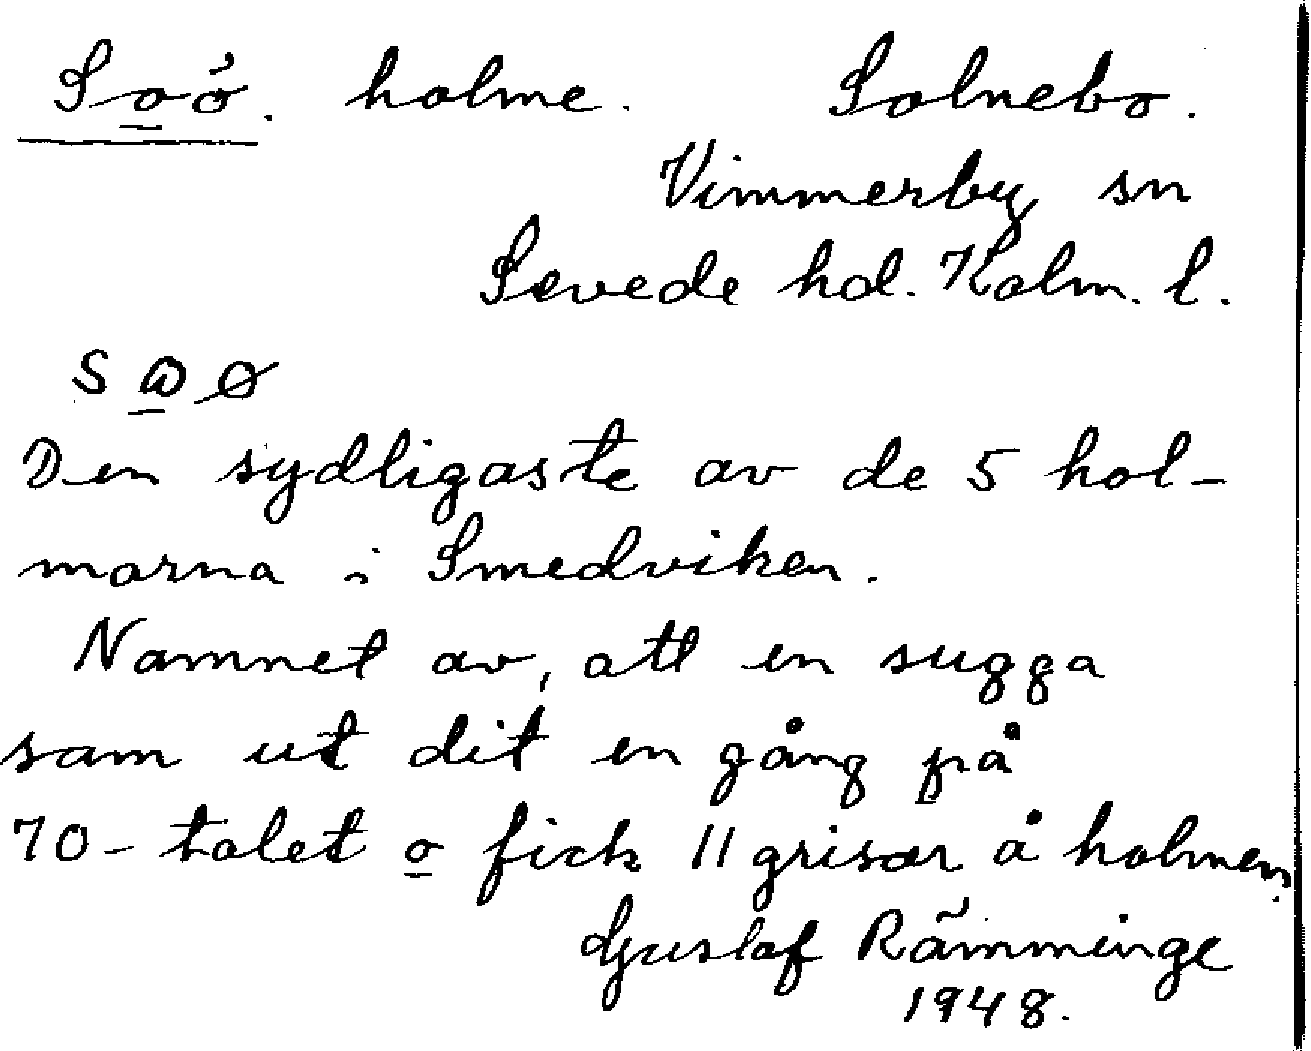 Soö. holme. Solnebo.
Vimmerby sn
Sevede hd. Kalm. l.
s ɷ ø
Den sydligaste av de 5 hol-
marna i Smedviken.
Namnet av, att en sugga
sam ut dit en gång på
70-talet o fick 11 grisar å holmen.
Gustaf Rämminge
1948.